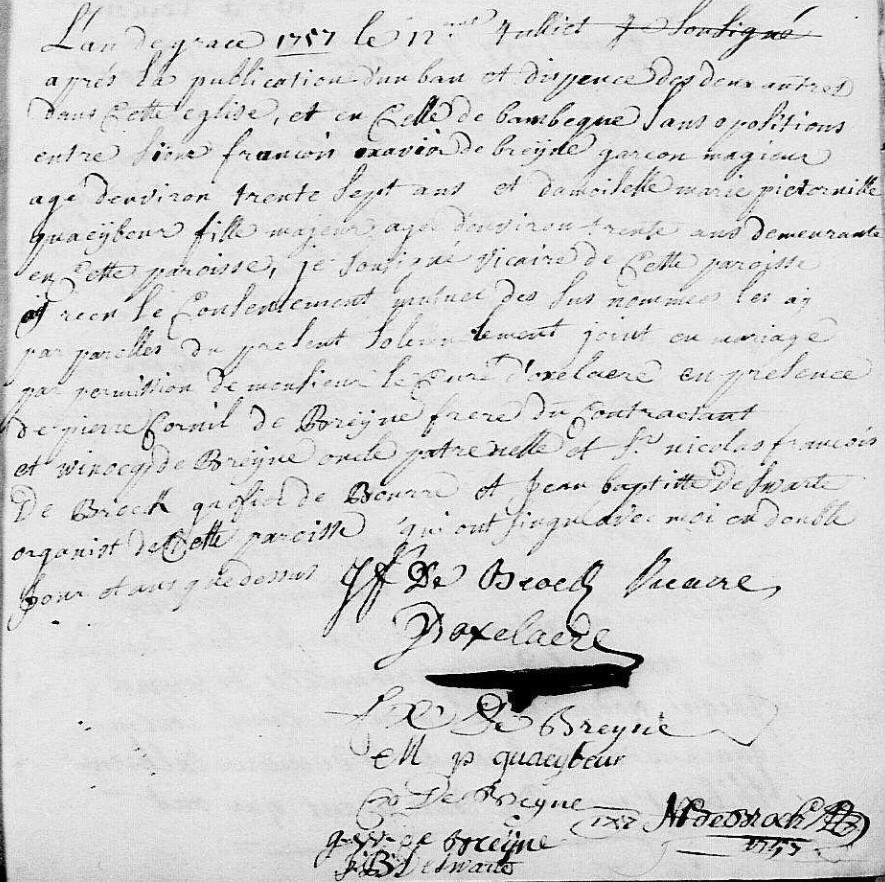 L'an de grace 1757 le 12me Julliet je Sousigné
aprés la publication d'un ban et dispence des deux autres
dans Cette eglise, et en Celle de bambeque Sans opositions
entre Sieur françois xavier de breÿne garcon magieur
agé d'environ trente Sept ans et damoiselle marie pieternille
quaeÿbeur fille majeur agée d'environ trente ans demeurante
en Cette paroisse, je Sousigné vicaire de Cette paroisse
aÿ receu le Consentement mutuel des Sus nommées les aÿ
par parolles du present Solemnelement joint en mariage
par permission de monsieur le Curé d'oxelaere en presence
de pierre Cornil de Breÿne frere du Contractant
et winocq de Breÿne oncle patrenelle et Sr nicolas françois
De Brock greffier de Bourre et Jean baptitte DeSwarte
organist de Cette paroisse qui ont Singné avec moi en double
jour et ans que dessus J f De Broeck Vicaire
D'oxelaere
f x De Breyne
M p quaeybeur
De Breÿne
de breÿne 1757
J B DeSwarte 1757